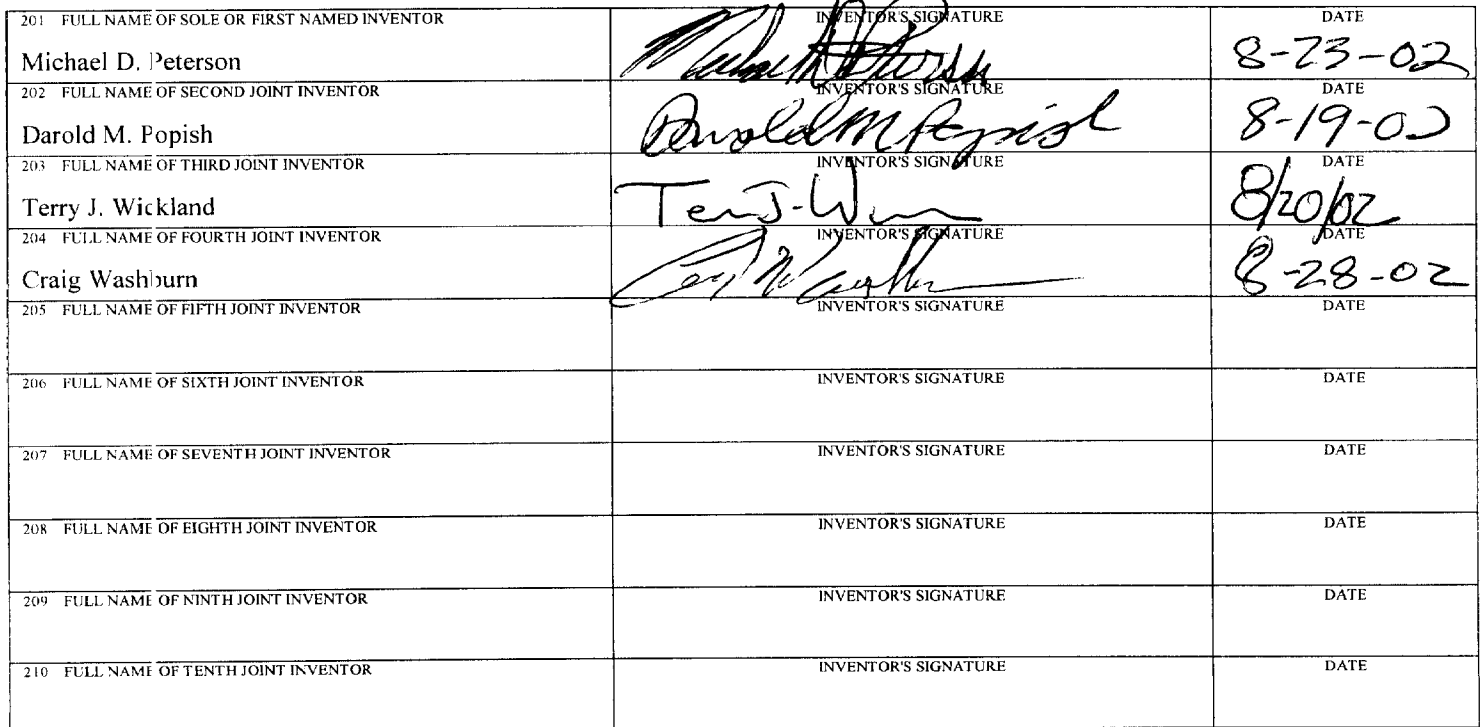 201 FULL NAME OF SOLE OR FIRST NAMED INVENTOR INVENTOR'S SIGNATURE DATE
Michael D. Peterson 8-23-02
202 FULL NAME OF SECOND JOINT INVENTOR INVENTOR'S SIGNATURE DATE
Darold M. Popish Darold M Popish 8-19-02
203 FULL NAME OF THIRD JOINT INVENTOR INVENTOR'S SIGNATURE DATE
Terry J. Wickland 8/20/02
204 FULL NAME OF FOURTH JOINT INVENTOR INVENTOR'S SIGNATURE DATE
Craig Washburn 8-28-02
205 FULL NAME OF FIFTH JOINT INVENTOR INVENTOR'S SIGNATURE DATE
206 FULL NAME OF SIXTH JOINT INVENTOR INVENTOR'S SIGNATURE DATE
207 FULL NAME OF SEVENTH JOINT INVENTOR INVENTOR'S SIGNATURE DATE
208 FULL NAME OF EIGHTH JOINT INVENTOR INVENTOR'S SIGNATURE DATE
209 FULL NAME OF NINTH JOINT INVENTOR INVENTOR'S SIGNATURE DATE
210 FULL NAME OF TENTH JOINT INVENTOR INVENTOR'S SIGNATURE DATE